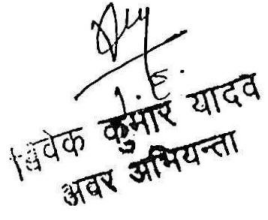 विवेक कुमार यादव
अवर अभियन्ता